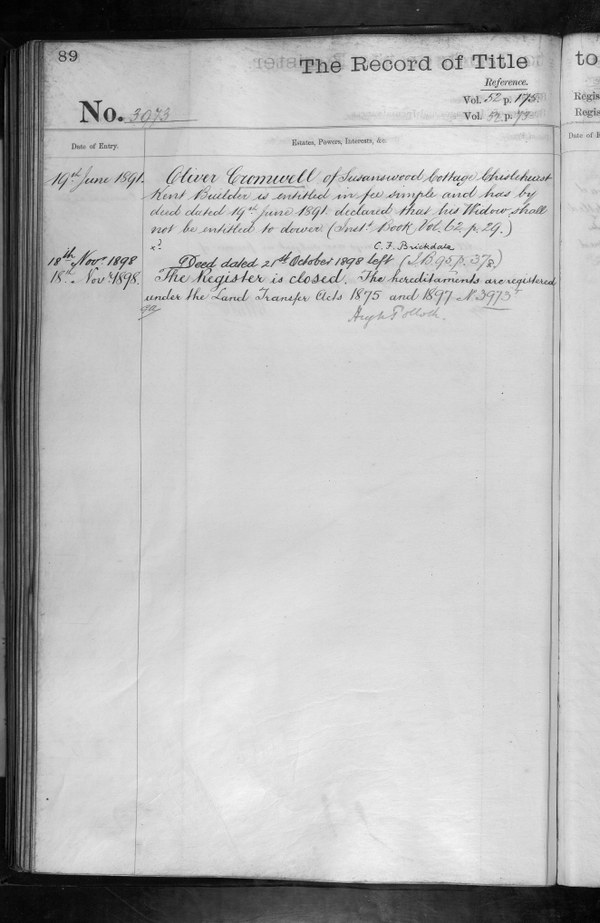 89
The Record of Title
Reference.
Vol. 52 p. 175
No. 3973
Vol. 52 p. 73
Date of Entry.
Estates, Powers, Interests, &c.
19th June 1891. Oliver Cromwell of Susanswood Cottage Chislehurst
Kent Builder is entitled in fee simple and has by
deed dated 19th June 1891 declared that his Widow shall
not be entitled to dower (Inst. Book Vol. 62. p. 29.)
C. F. Brickdale
18th Novr. 1898 Deed dated 21st October 1898 left (I.B. 95 p. 378)
18th Novr. 1898. The Register is closed. The hereditaments are registered
under the Land Transfer Acts 1875 and 1897 No. 3973
Hugh Pollock.
to
Regis
Regis
Date of E